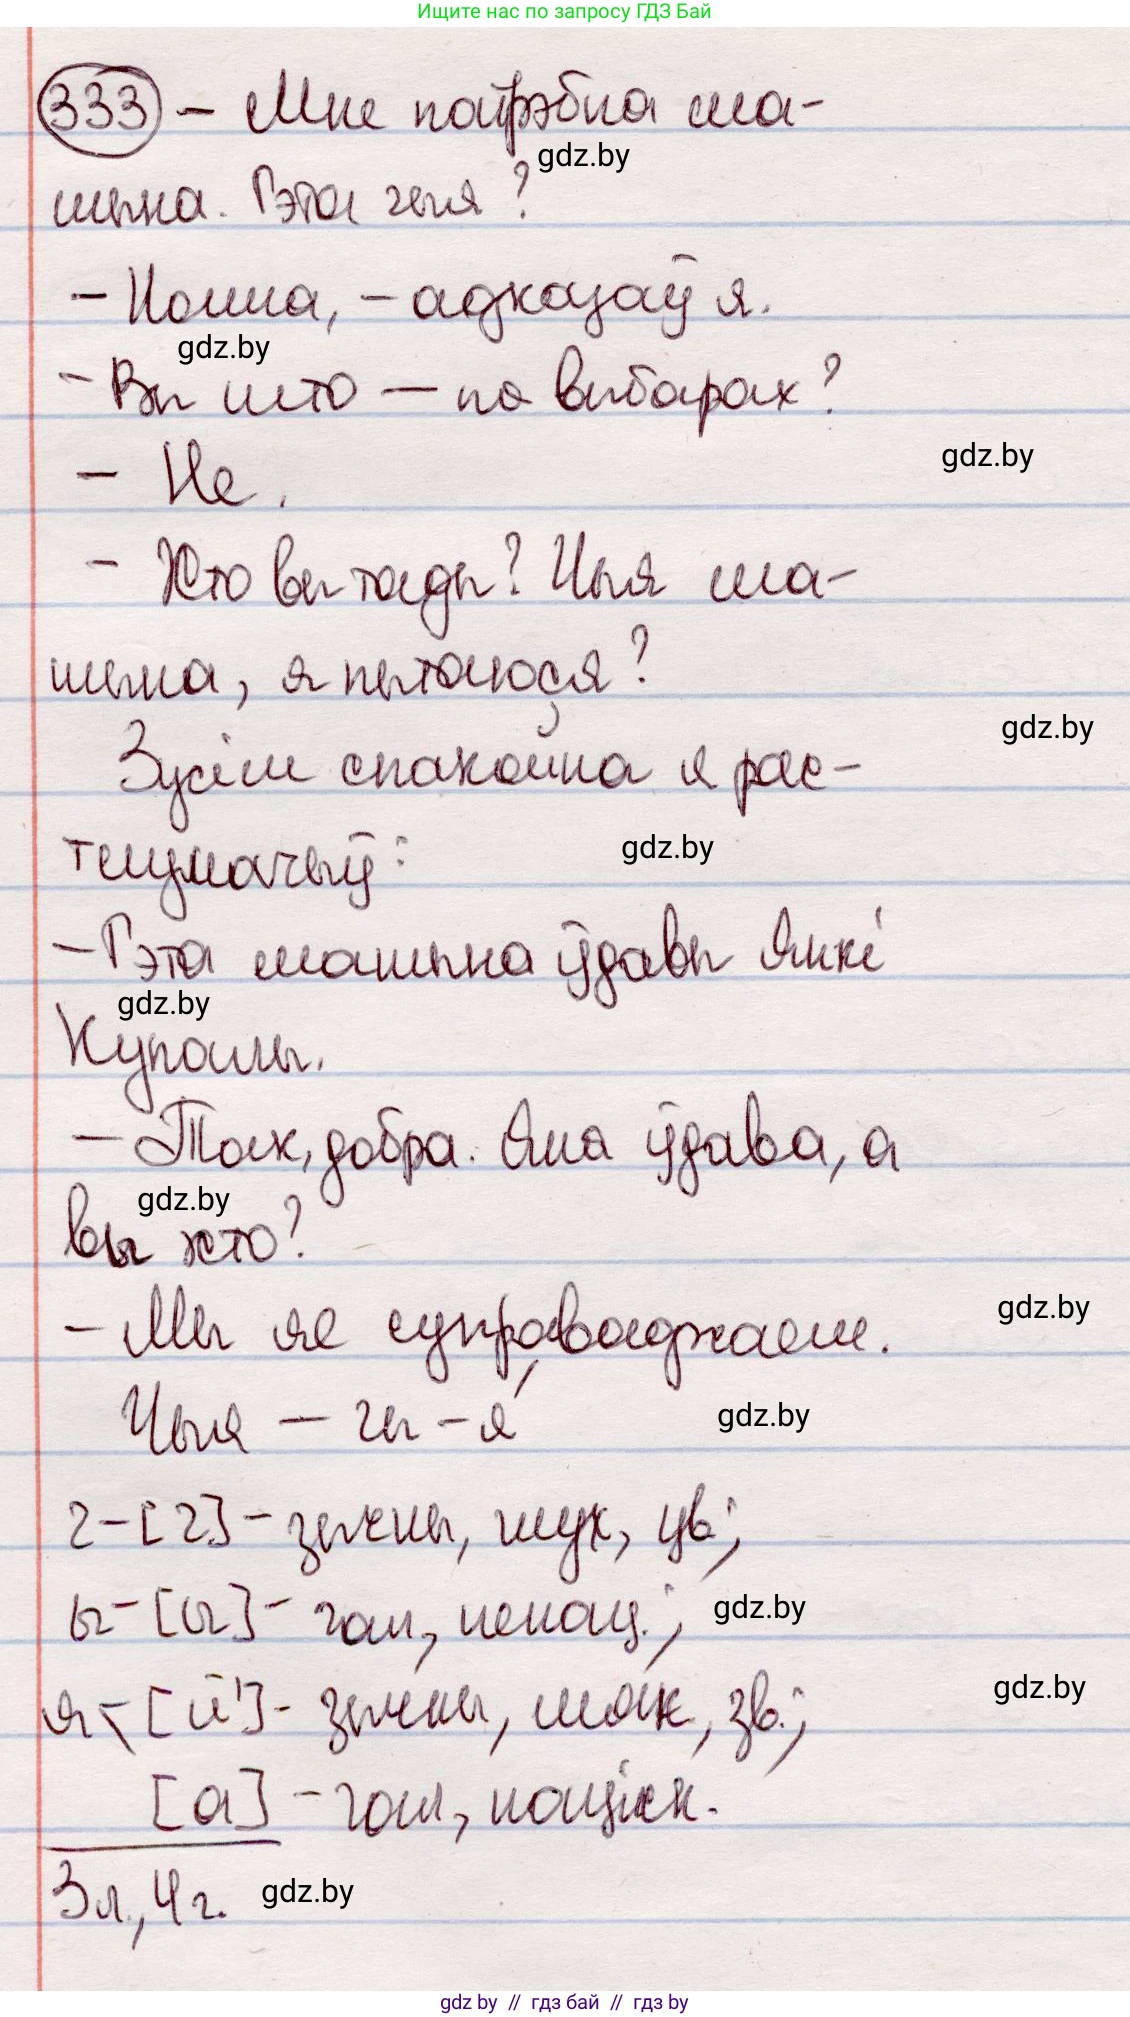 Ищите нас по запросу ГДЗ Бай
333 – Мне патрэбна ма-
шына. Гэта чыя?
gdz.by
– Наша, – адказаў я.
gdz.by
– Вы што – па выбарах?
– Не.
gdz.by
– Хто вы тады? Чыя ма-
шына, я пытаюся?
gdz.by
Зусім спакойна я рас-
тлумачыў:
gdz.by
– Гэта машына ўдавы Янкі
gdz.by
Купалы.
– Так, добра. Яна ўдава, а
gdz.by
вы хто?
gdz.by
– Мы яе суправаджаем.
Чыя – чы-я́
gdz.by
ч – [ч] – зычны, глух, цв.;
ы – [ы] – гал, ненац.;
gdz.by
gdz.by
я – [й'] – зычны, мяк, зв.;
[а] – гал, націск.
3 л., 4 г.
gdz.by
gdz by // гдз бай // гдз by